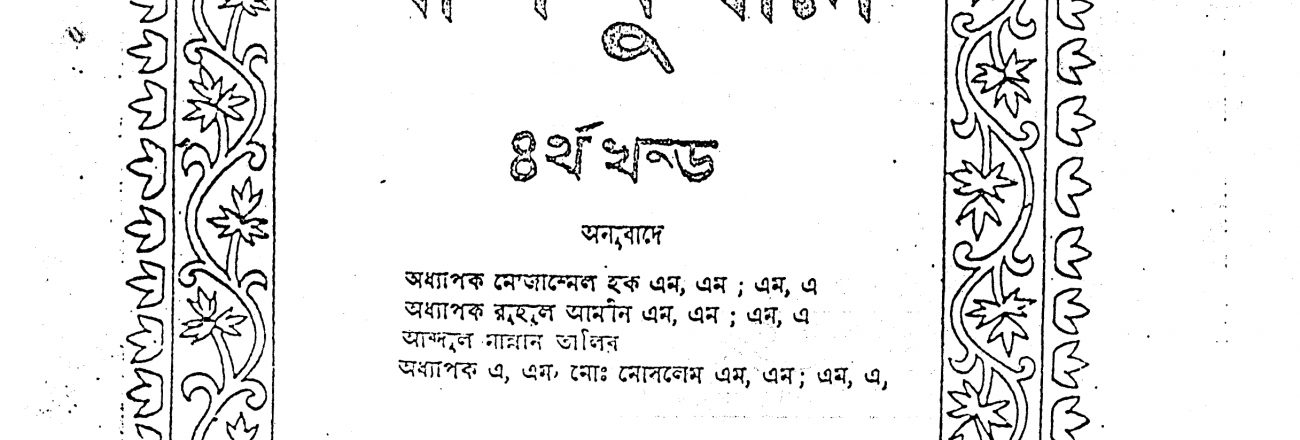 ৪র্থ খন্ড
অনুবাদে
অধ্যাপক মোজাম্মেল হক এম, এম ; এম, এ
অধ্যাপক রুহুল আমীন এম, এম ; এম, এ
আব্দুল মান্নান তালিব
অধ্যাপক এ, এম, মোঃ মোসলেম এম, এম ; এম, এ,